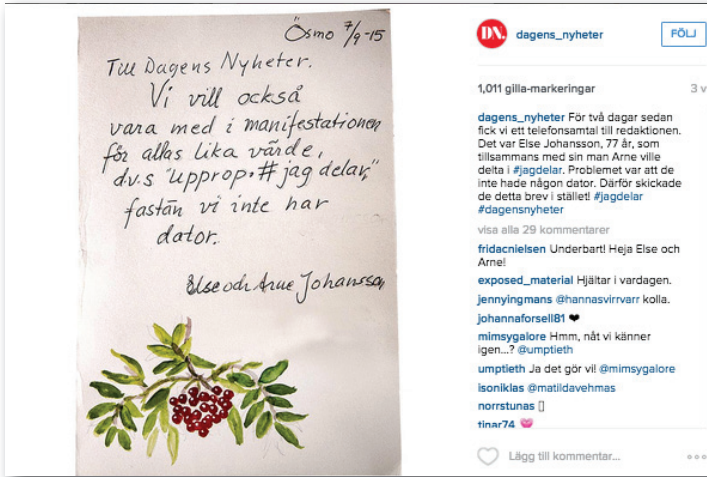 Ösmo 7/9-15
Till Dagens Nyheter.
Vi vill också
vara med i manifestationen
för allas lika värde,
d.v.s "upprop. # jag delar,"
fastän vi inte har
dator.
Else och Arne Johansson
DN.
dagens_nyheter
FÖLJ
1,011 gilla-markeringar
3 v
dagens_nyheter För två dagar sedan
fick vi ett telefonsamtal till redaktionen.
Det var Else Johansson, 77 år, som
tillsammans med sin man Arne ville
delta i #jagdelar. Problemet var att de
inte hade någon dator. Därför skickade
de detta brev i stället! #jagdelar
#dagensnyheter
visa alla 29 kommentarer
fridacnielsen Underbart! Heja Else och
Arne!
exposed_material Hjältar i vardagen.
jennyingmans @hannasvirrvarr kolla.
johannaforsell81 ❤
mimsygalore Hmm, nåt vi känner
igen...? @umptieth
umptieth Ja det gör vi! @mimsygalore
isoniklas @matildavehmas
norrstunas []
tinar74 💗
Lägg till kommentar...